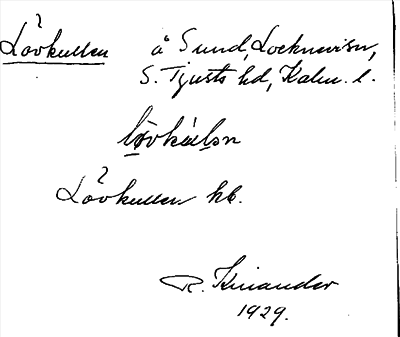 ?
Lövkullen å Sund, Locknevi sn,
S. Tjusts hd, Kalm. l.
lövkúlen
?
Lövkullen hb.
R. Kinander
1929.